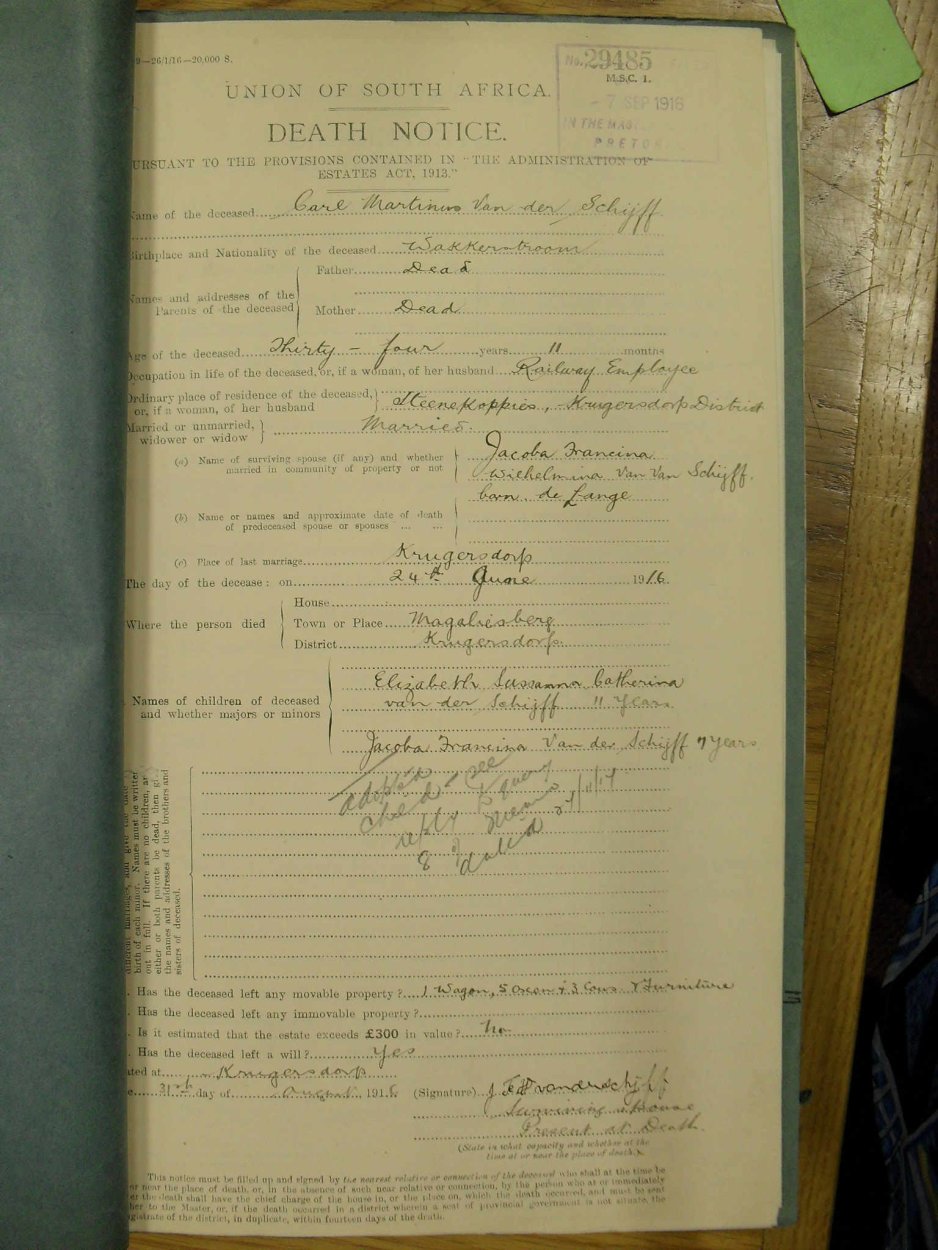 9—26/1/16—20,000 S.
No. 29485
M.S.C. 1.
- 7 SEP 1916
IN THE MAS
PRETO
UNION OF SOUTH AFRICA.
DEATH NOTICE.
URSUANT TO THE PROVISIONS CONTAINED IN "THE ADMINISTRATION OF
ESTATES ACT, 1913."
Name of the deceased Carl Martinus Van der Schijff
Birthplace and Nationality of the deceased Wakkerstroom
Names and addresses of the
Parents of the deceased
Father Dead
Mother Dead
Age of the deceased Thirty - four years 11 months
Occupation in life of the deceased, or, if a woman, of her husband Railway Employee
Ordinary place of residence of the deceased,
or, if a woman, of her husband
Steenekoppies, Krugersdorp District
Married or unmarried,
widower or widow
Married.
(a) Name of surviving spouse (if any) and whether
married in community of property or not
Jacoba Francina
Wilhelmina Van Van Schijff.
born de Lange
(b) Name or names and approximate date of death
of predeceased spouse or spouses ... ...
(c) Place of last marriage Krugersdorp
The day of the decease: on 24th June 1916.
Where the person died
House
Town or Place Magaliesberg
District Krugersdorp.
Names of children of deceased
and whether majors or minors
Elizabeth Sussanna Catherina
van der Schijff 11 Years
Jacoba Francina Van der Schijff 7 Years
adopted
child - see
reply to query
8 of memo
dated 27/11/17
birth of each minor. Names must be written
out in full. If there are no children, an
either or both parents be dead, then gi
the names and addresses of the brothers and
sisters of deceased.
. Has the deceased left any movable property? 1 Wagon, 5 Oxen & 3 Cows & Furniture
. Has the deceased left any immovable property?
. Is it estimated that the estate exceeds £300 in value? No.
. Has the deceased left a will? Yes
ated at Krugersdorp
e 31st day of August, 1916 (Signature) J F W vanderschijff
Surviving Spouse
Present at Death.
(State in what capacity and whether at the
time at or near the place of death.)
This notice must be filled up and signed by the nearest relative or connection of the deceased who shall at the time be
or near the place of death, or, in the absence of such near relative or connection, by the person who at or immediately
er the death shall have the chief charge of the house in, or the place on, which the death occurred, and must be sent
her to the Master, or, if the death occurred in a district wherein a seat of provincial government is not situate, the
gistrate of the district, in duplicate, within fourteen days of the death.